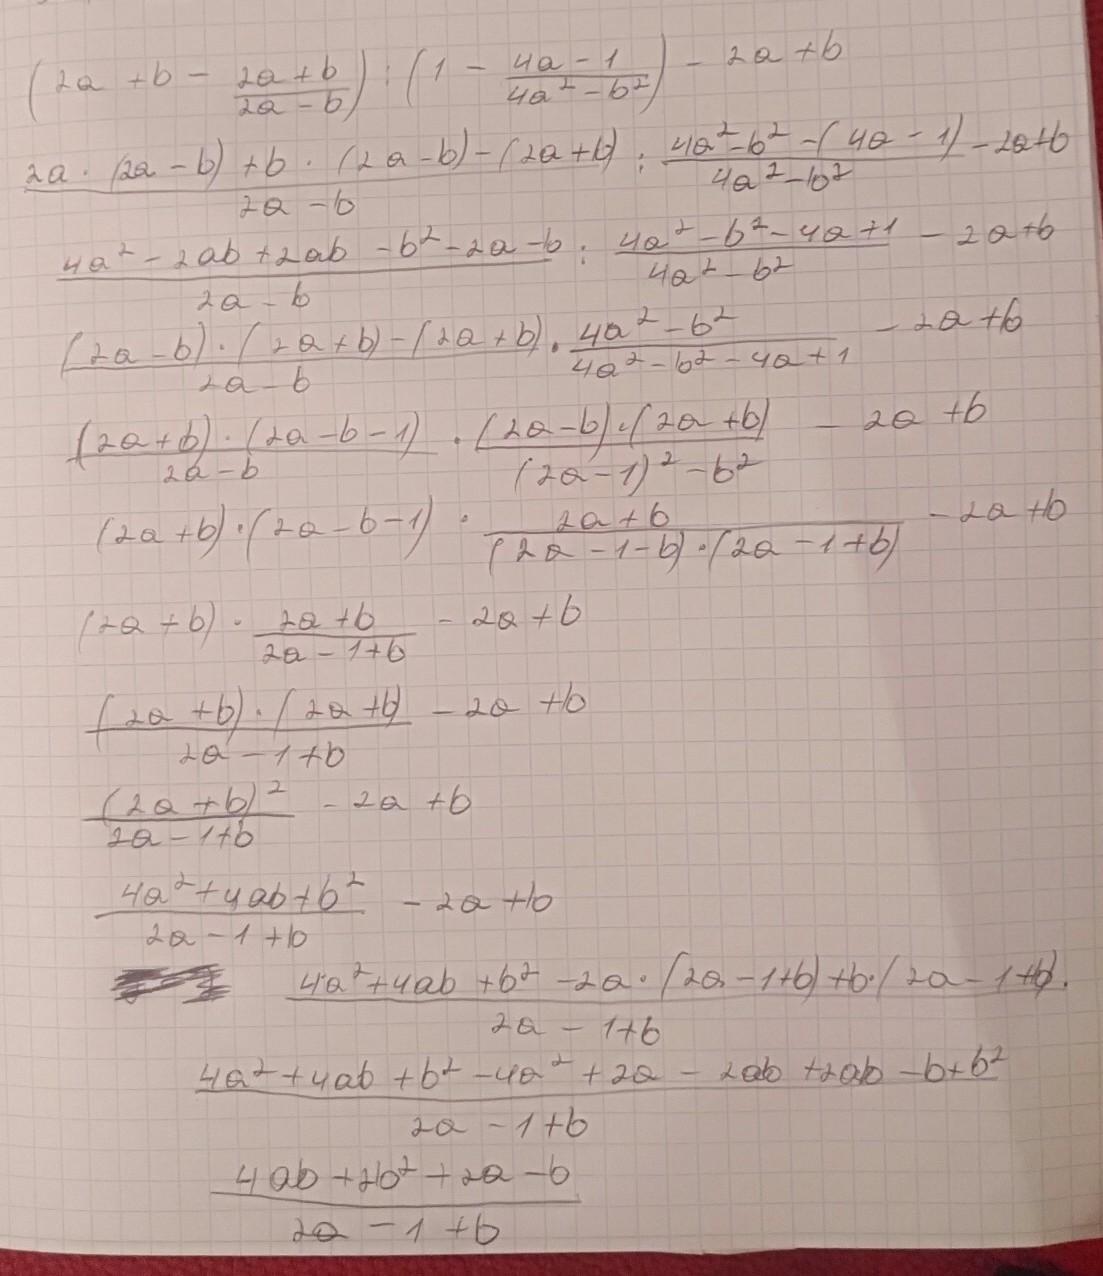 (2a + b - (2a + b)/(2a - b)) : (1 - (4a - 1)/(4a² - b²)) - 2a + b
(2a · (2a - b) + b · (2a - b) - (2a + b))/(2a - b) : (4a² - b² - (4a - 1))/(4a² - b²) - 2a + b
(4a² - 2ab + 2ab - b² - 2a - b)/(2a - b) : (4a² - b² - 4a + 1)/(4a² - b²) - 2a + b
((2a - b) · (2a + b) - (2a + b))/(2a - b) · (4a² - b²)/(4a² - b² - 4a + 1) - 2a + b
((2a + b) · (2a - b - 1))/(2a - b) · ((2a - b) · (2a + b))/((2a - 1)² - b²) - 2a + b
(2a + b) · (2a - b - 1) · (2a + b)/((2a - 1 - b) · (2a - 1 + b)) - 2a + b
(2a + b) · (2a + b)/(2a - 1 + b) - 2a + b
((2a + b) · (2a + b))/(2a - 1 + b) - 2a + b
(2a + b)²/(2a - 1 + b) - 2a + b
(4a² + 4ab + b²)/(2a - 1 + b) - 2a + b
(4a² + 4ab + b² - 2a · (2a - 1 + b) + b · (2a - 1 + b))/(2a - 1 + b)
(4a² + 4ab + b² - 4a² + 2a - 2ab + 2ab - b + b²)/(2a - 1 + b)
(4ab + 2b² + 2a - b)/(2a - 1 + b)